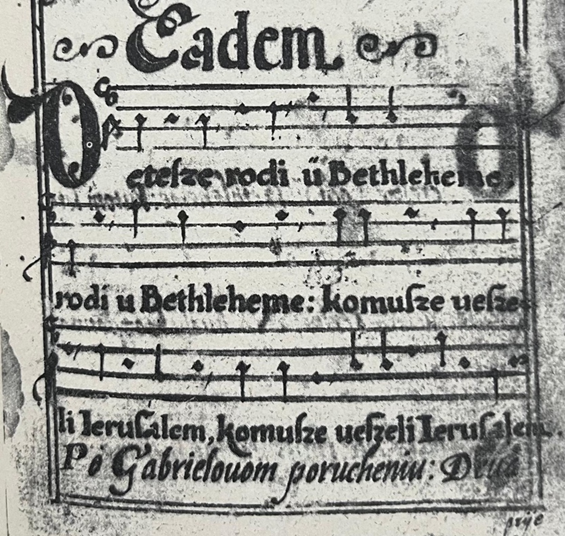 Eadem
Otesze rodi ŭ Bethleheme,
rodi u Bethleheme: komusze uesze
li Ierusalem, komusze ueszeli Ierusalem.
Po Gabrielouom porucheniu: